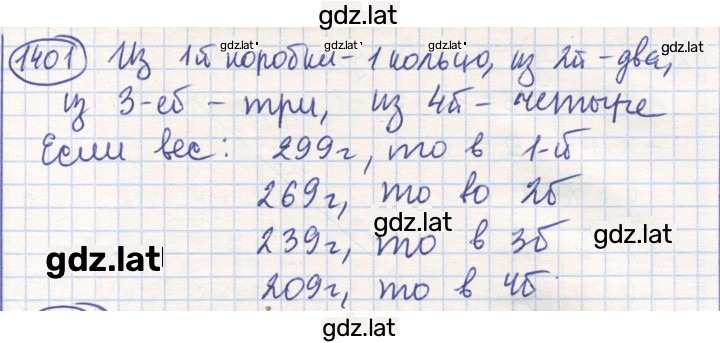 gdz.lat
1401 Из 1й коробки - 1 кольцо, из 2й - два,
gdz.lat gdz.lat gdz.lat
из 3-ей - три, из 4й - четыре
Если вес: 299г, то в 1-й
269г, то во 2б
gdz.lat
239г, то в 3б
gdz.lat
gdz.lat
209г, то в 4б
gdz.lat